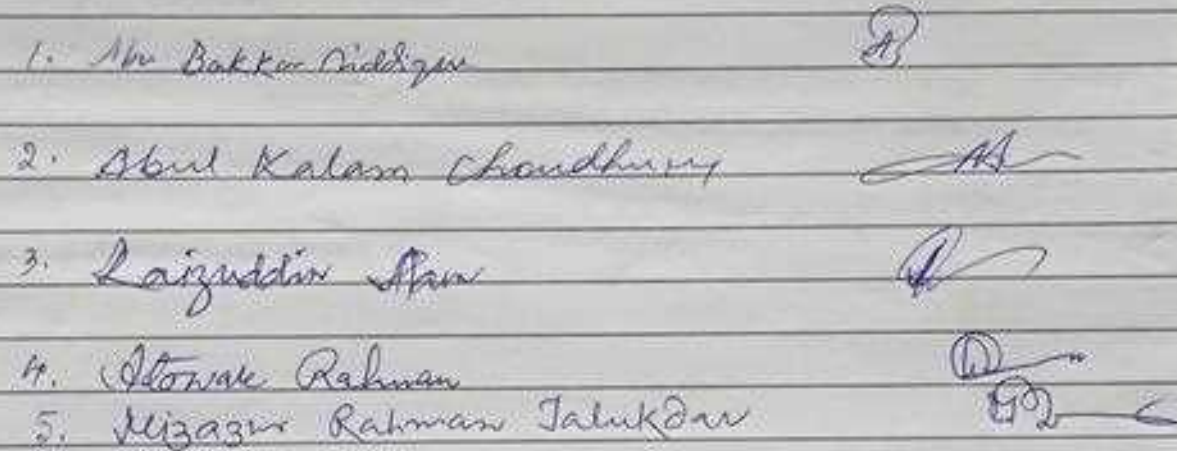 1. Abu Bakkar Siddique
2. Abul Kalam Choudhury
3. Raizuddin
4. Atowar Rahman
5. Mizazur Rahman Talukdar